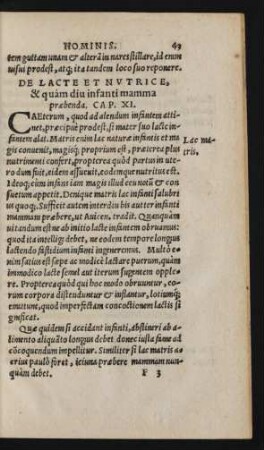 HOMINIS. 49
tem guttam unam & alterã in nares stillare, id enim
usui prodest, atq; ita tandem loco suo reponere.
DE LACTE ET NVTRICE,
& quàm diu infanti mamma
præbenda. CAP. XI.
CAEterum, quod ad alendum infantem atti-
net, præcipuè prodest, si mater suo lacte in-
fantem alit. Matris enim lac naturæ infantis et ma
gis conuenit, magisq; proprium est, præterea plus
nutrimenti confert, propterea quòd partus in ute-
ro dum fuit, eidem assueuit, eodemque nutritus est.
Ideoq; etiam infans iam magis illud ceu notũ & con
suetum appetit. Deniq;ue matris lac infanti salubri
us quoq;. Sufficit autem interdiu bis aut ter infanti
mammam præbere, ut Auicen. tradit. Quanquàm
uitandum est ne ab initio lacte infantem obruamus:
quod ita intellige debet, ne eodem tempore longus
lactendo fastidium infanti ingeneremus. Multò e-
nim satius est sæpe ac modicè lactare puerum, quàm
immodico lacte semel aut iterum sugentem opple-
re. Propterea quòd qui hoc modo obruuntur, eo-
rum corpora distenduntur & inflantur, lotiumq́;
emutunt, quod imperfectam concoctionem lactis si
gnificat.
Quæ quidem si accidant infanti, abstineri ab a-
limento aliquãto longus debet donec iusta fame ad
cõcoquendum impellitur. Similiter si lac matris a-
crius paulò foret, ieiuna præbere mammam nun-
quàm debet. F 3
Lac ma-
tris.